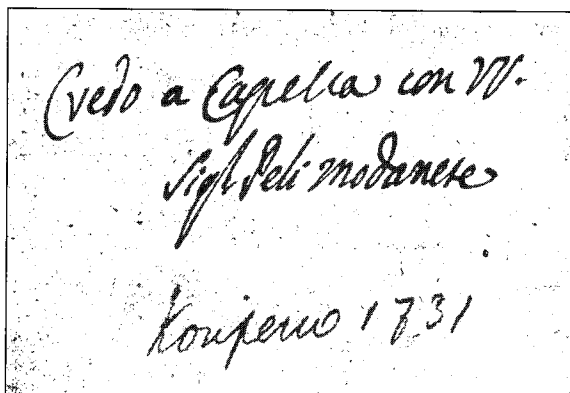 Credo a Capella con VV.
Sigr Peli modanese
1731